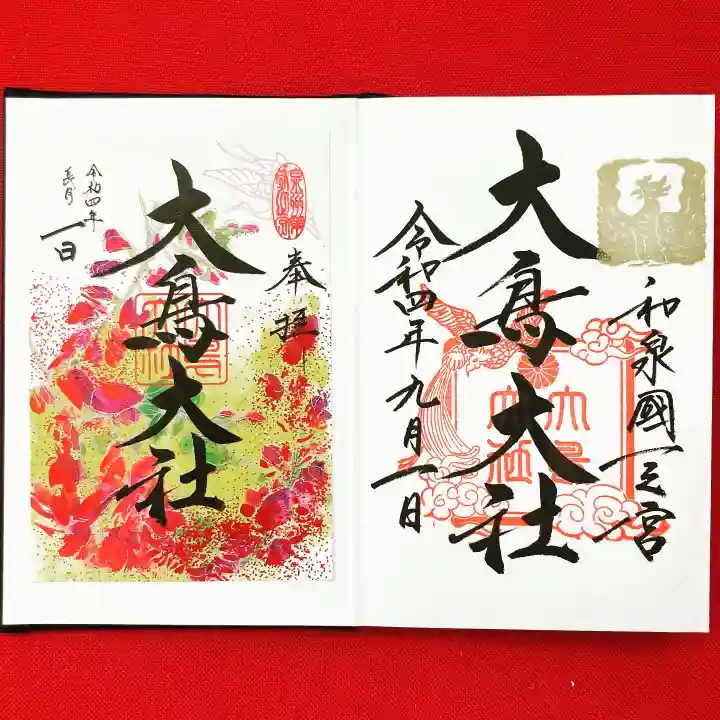 奉拝
大鳥大社
令和四年
長月
一日
和泉國一之宮
大鳥大社
令和四年九月一日
大鳥大社